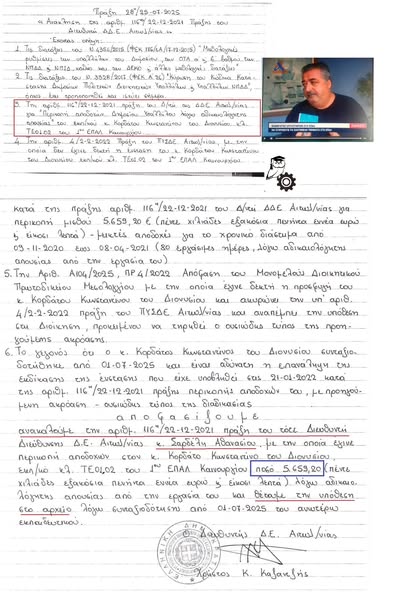 Πράξη 28η/22-07-2025
«Ανάκληση της αριθμ. 116ης/22-12-2021 Πράξης του
Διευθυντή ΔΔΕ Αιτωλ/νίας»
Έχοντας υπόψη:
3. Την αριθμ. 116ης/22-12-2021 πράξη του Δ/ντή της ΔΔΕ Αιτωλ/νίας
για "Περικοπή αποδοχών Δημοσίου Υπαλλήλου λόγω αδικαιολόγητης
απουσίας" του εκπ/κού κ. Κορδάτου Κωνσταντίνου του Διονυσίου κλ.
ΤΕ01.02 του 1ου ΕΠΑΛ Καινουργίου.
4. Την αριθμ. 4/2-2-2022 Πράξη του ΠΥΣΔΕ Αιτωλ/νίας, με την
οποία δεν έγινε δεκτή η ένσταση του κ. Κορδάτου Κωνσταντίνου
του Διονυσίου εκπ/κού κλ. ΤΕ01.02 του 1ου ΕΠΑΛ Καινουργίου
κατά της πράξης αριθμ. 116ης/22-12-2021 του Δ/ντή της ΔΔΕ Αιτωλ/νίας για
περικοπή μισθού 5.659,20 € (πέντε χιλιάδες εξακόσια πενήντα εννέα ευρώ
& είκοσι λεπτά) - μεικτές αποδοχές για το χρονικό διάστημα από
09-11-2020 έως 08-04-2021 (80 εργάσιμες ημέρες, λόγω αδικαιολόγητης
απουσίας από την εργασία του).
5. Την Αριθ. Α104/2025, ΠΡ4/2022 Απόφαση του Μονομελούς Διοικητικού
Πρωτοδικείου Μεσολογγίου με την οποία έγινε δεκτή η προσφυγή του
κ. Κορδάτου Κωνσταντίνου του Διονυσίου και ακυρώνει την υπ' αριθ.
4/2-2-2022 πράξη του ΠΥΣΔΕ Αιτωλ/νίας και αναπέμπει την υπόθεση
στη Διοίκηση, προκειμένου να τηρηθεί ο ουσιώδης τύπος της προη-
γούμενης ακρόασης.
6. Το γεγονός ότι ο κ. Κορδάτος Κωνσταντίνος του Διονυσίου συνταξιο-
δοτήθηκε από 01-07-2025 και είναι αδύνατη η επανάληψη της
εκδίκασης της ένστασης που είχε υποβληθεί στις 21-01-2022 κατά
της αριθμ. 116ης/22-12-2021 πράξης περικοπής αποδοχών του, με προηγού-
μενη ακρόαση - ουσιώδης τύπος της διαδικασίας
αποφασίζουμε
ανακαλούμε την αριθμ. 116ης/22-12-2021 πράξη του τότε Διευθυντή
Διεύθυνσης Δ.Ε. Αιτωλ/νίας κ. Σαρδέλη Αθανασίου, με την οποία έγινε
περικοπή αποδοχών στον κ. Κορδάτο Κωνσταντίνο του Διονυσίου,
εκπ/κό κλ. ΤΕ01.02 του 1ου ΕΠΑΛ Καινουργίου ποσό 5.659,20 (πέντε
χιλιάδες εξακόσια πενήντα εννέα ευρώ & είκοσι λεπτά) λόγω αδικαιο-
λόγητης απουσίας από την εργασία του και θέταμε την υπόθεση
στο αρχείο λόγω συνταξιοδότησης από 01-07-2025 του ανωτέρω
εκπαιδευτικού.
Ο Διευθυντής Δ.Ε. Αιτωλ/νίας
Χρήστος Κ. Καζαντζής